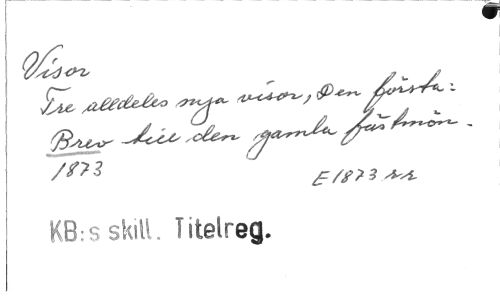 Visor
Tre alldeles nya visor, Den första:
Brev till den gamla fästmön.
1873 E1873 rr
KB:s skill. Titelreg.